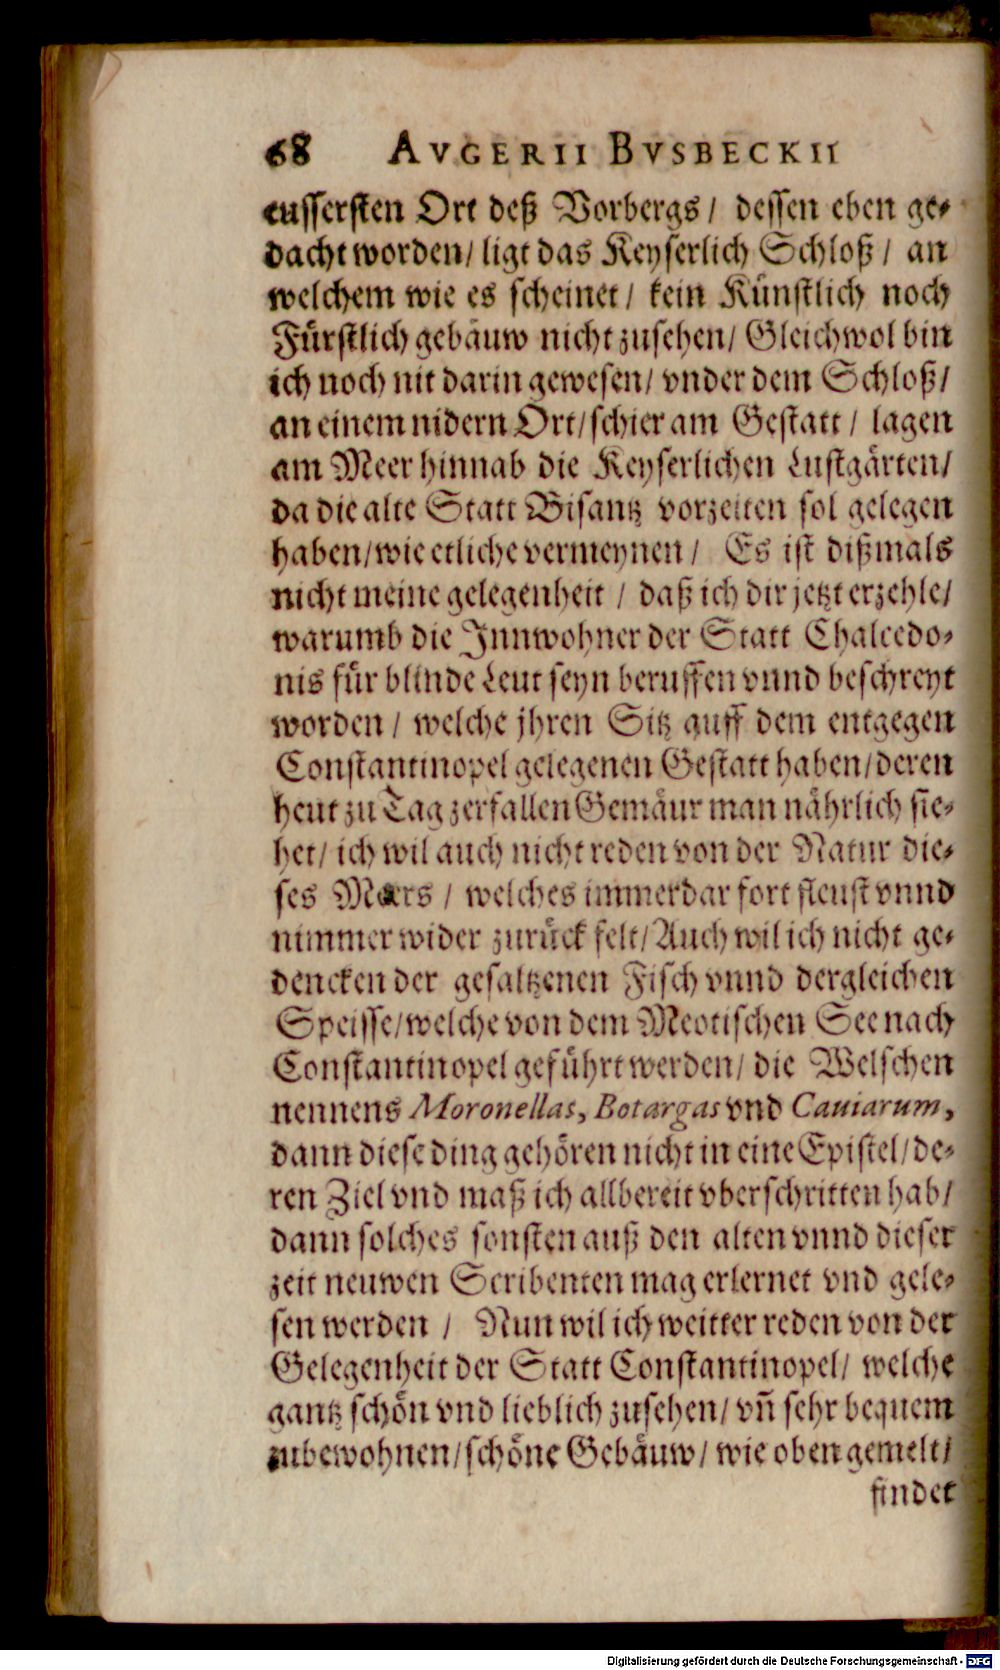 68 AVGERII BVSBECKII
eussersten Ort deß Vorbergs / dessen eben ge-
dacht worden/ ligt das Keyserlich Schloß / an
welchem wie es scheinet / kein Künstlich noch
Fürstlich gebäuw nicht zusehen/ Gleichwol bin
ich noch nit darin gewesen/ vnder dem Schloß/
an einem nidern Ort/ schier am Gestatt / lagen
am Meer hinnab die Keyserlichen Lustgärten/
da die alte Statt Bisantz vorzeiten sol gelegen
haben/ wie etliche vermeynen / Es ist dißmals
nicht meine gelegenheit / daß ich dir jetzt erzehle/
warumb die Innwohner der Statt Chalcedo-
nis für blinde Leut seyn beruffen vnnd beschreyt
worden / welche jhren Sitz auff dem entgegen
Constantinopel gelegenen Gestatt haben/ deren
heut zu Tag zerfallen Gemäur man nährlich sie-
het/ ich wil auch nicht reden von der Natur die-
ses Meers / welches immerdar fort fleust vnnd
nimmer wider zurück felt/ Auch wil ich nicht ge-
dencken der gesaltzenen Fisch vnnd dergleichen
Speisse/ welche von dem Meotischen See nach
Constantinopel geführt werden/ die Welschen
nennens Moronellas, Botargas vnd Cauiarum,
dann diese ding gehören nicht in eine Epistel/ de-
ren Ziel vnd maß ich allbereit vberschritten hab/
dann solches sonsten auß den alten vnnd dieser
zeit neuwen Scribenten mag erlernet vnd gele-
sen werden / Nun wil ich weitter reden von der
Gelegenheit der Statt Constantinopel/ welche
gantz schön vnd lieblich zusehen/ vñ sehr bequem
zubewohnen/ schöne Gebäuw/ wie oben gemelt/
findet
Digitalisierung gefördert durch die Deutsche Forschungsgemeinschaft - DFG